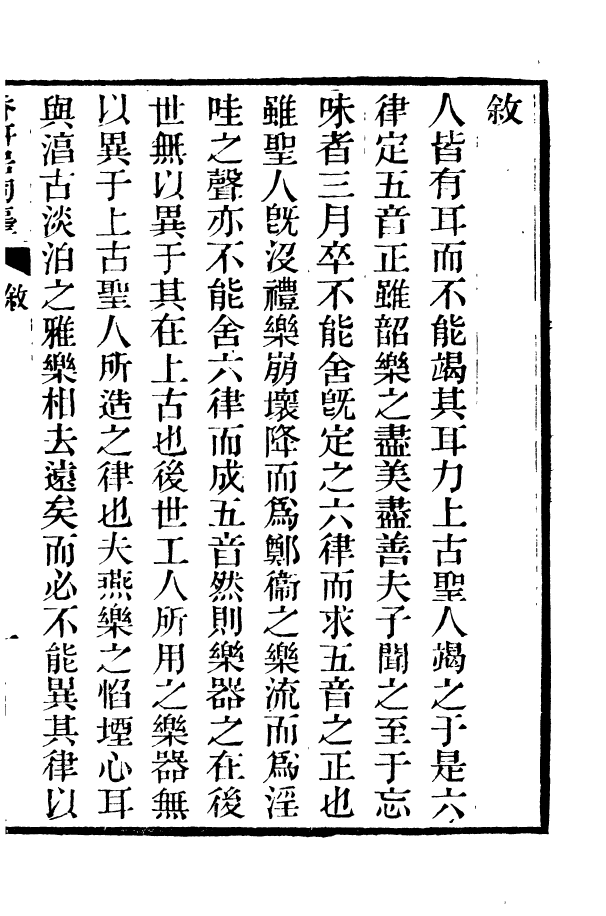 敘
人皆有耳而不能竭其耳力上古聖人竭之于是六
律定五音正雖韶樂之盡美盡善夫子聞之至于忘
味者三月卒不能舍旣定之六律而求五音之正也
雖聖人旣沒禮樂崩壞降而爲鄭衞之樂流而爲淫
哇之聲亦不能舍六律而成五音然則樂器之在後
世無以異于其在上古也後世工人所用之樂器無
以異于上古聖人所造之律也夫燕樂之慆堙心耳
與湻古淡泊之雅樂相去遠矣而必不能異其律以
敘
一